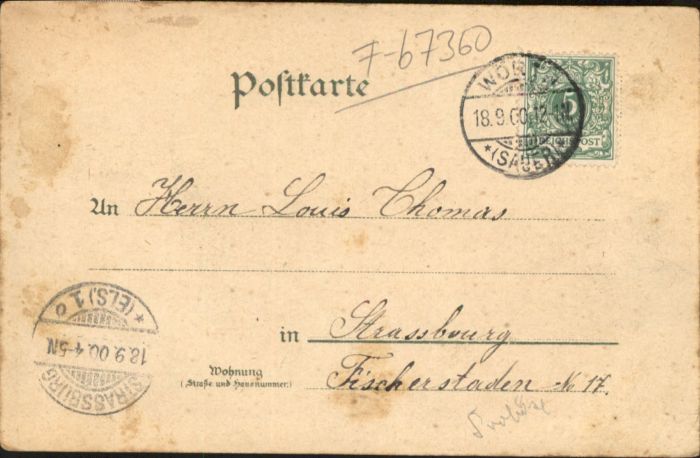 7-67360
Postkarte
WÖRTH
18.9.00.12-1N
*(SAUER)*
5
REICHSPOST
An Herrn Louis Thomas
in Strassbourg
Wohnung
(Straße und Hausnummer)
Fischerstaden No 17.
*(ELS.)1 o
18.9.00.4-5N
STRASSBURG